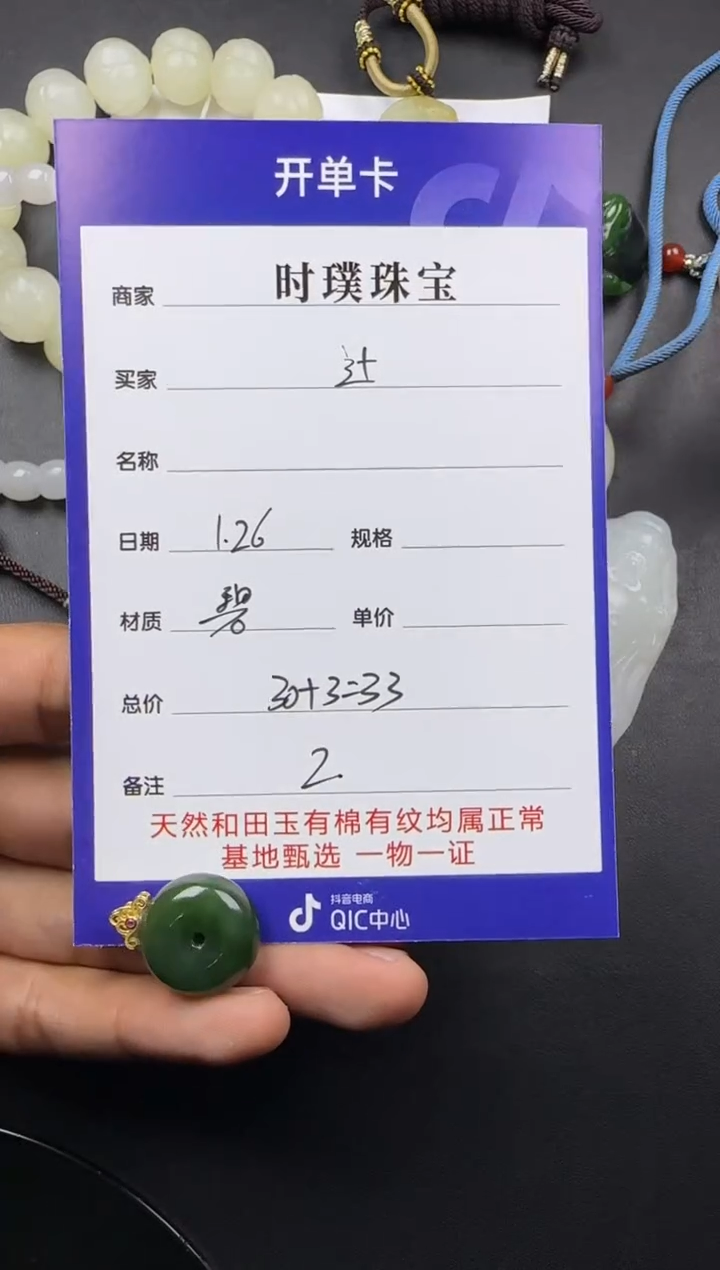 开单卡
商家 时璞珠宝
买家
名称
日期 1.26 规格
材质 碧 单价
总价 30+3=33
备注 2.
天然和田玉有棉有纹均属正常
基地甄选 一物一证
抖音电商
QIC中心